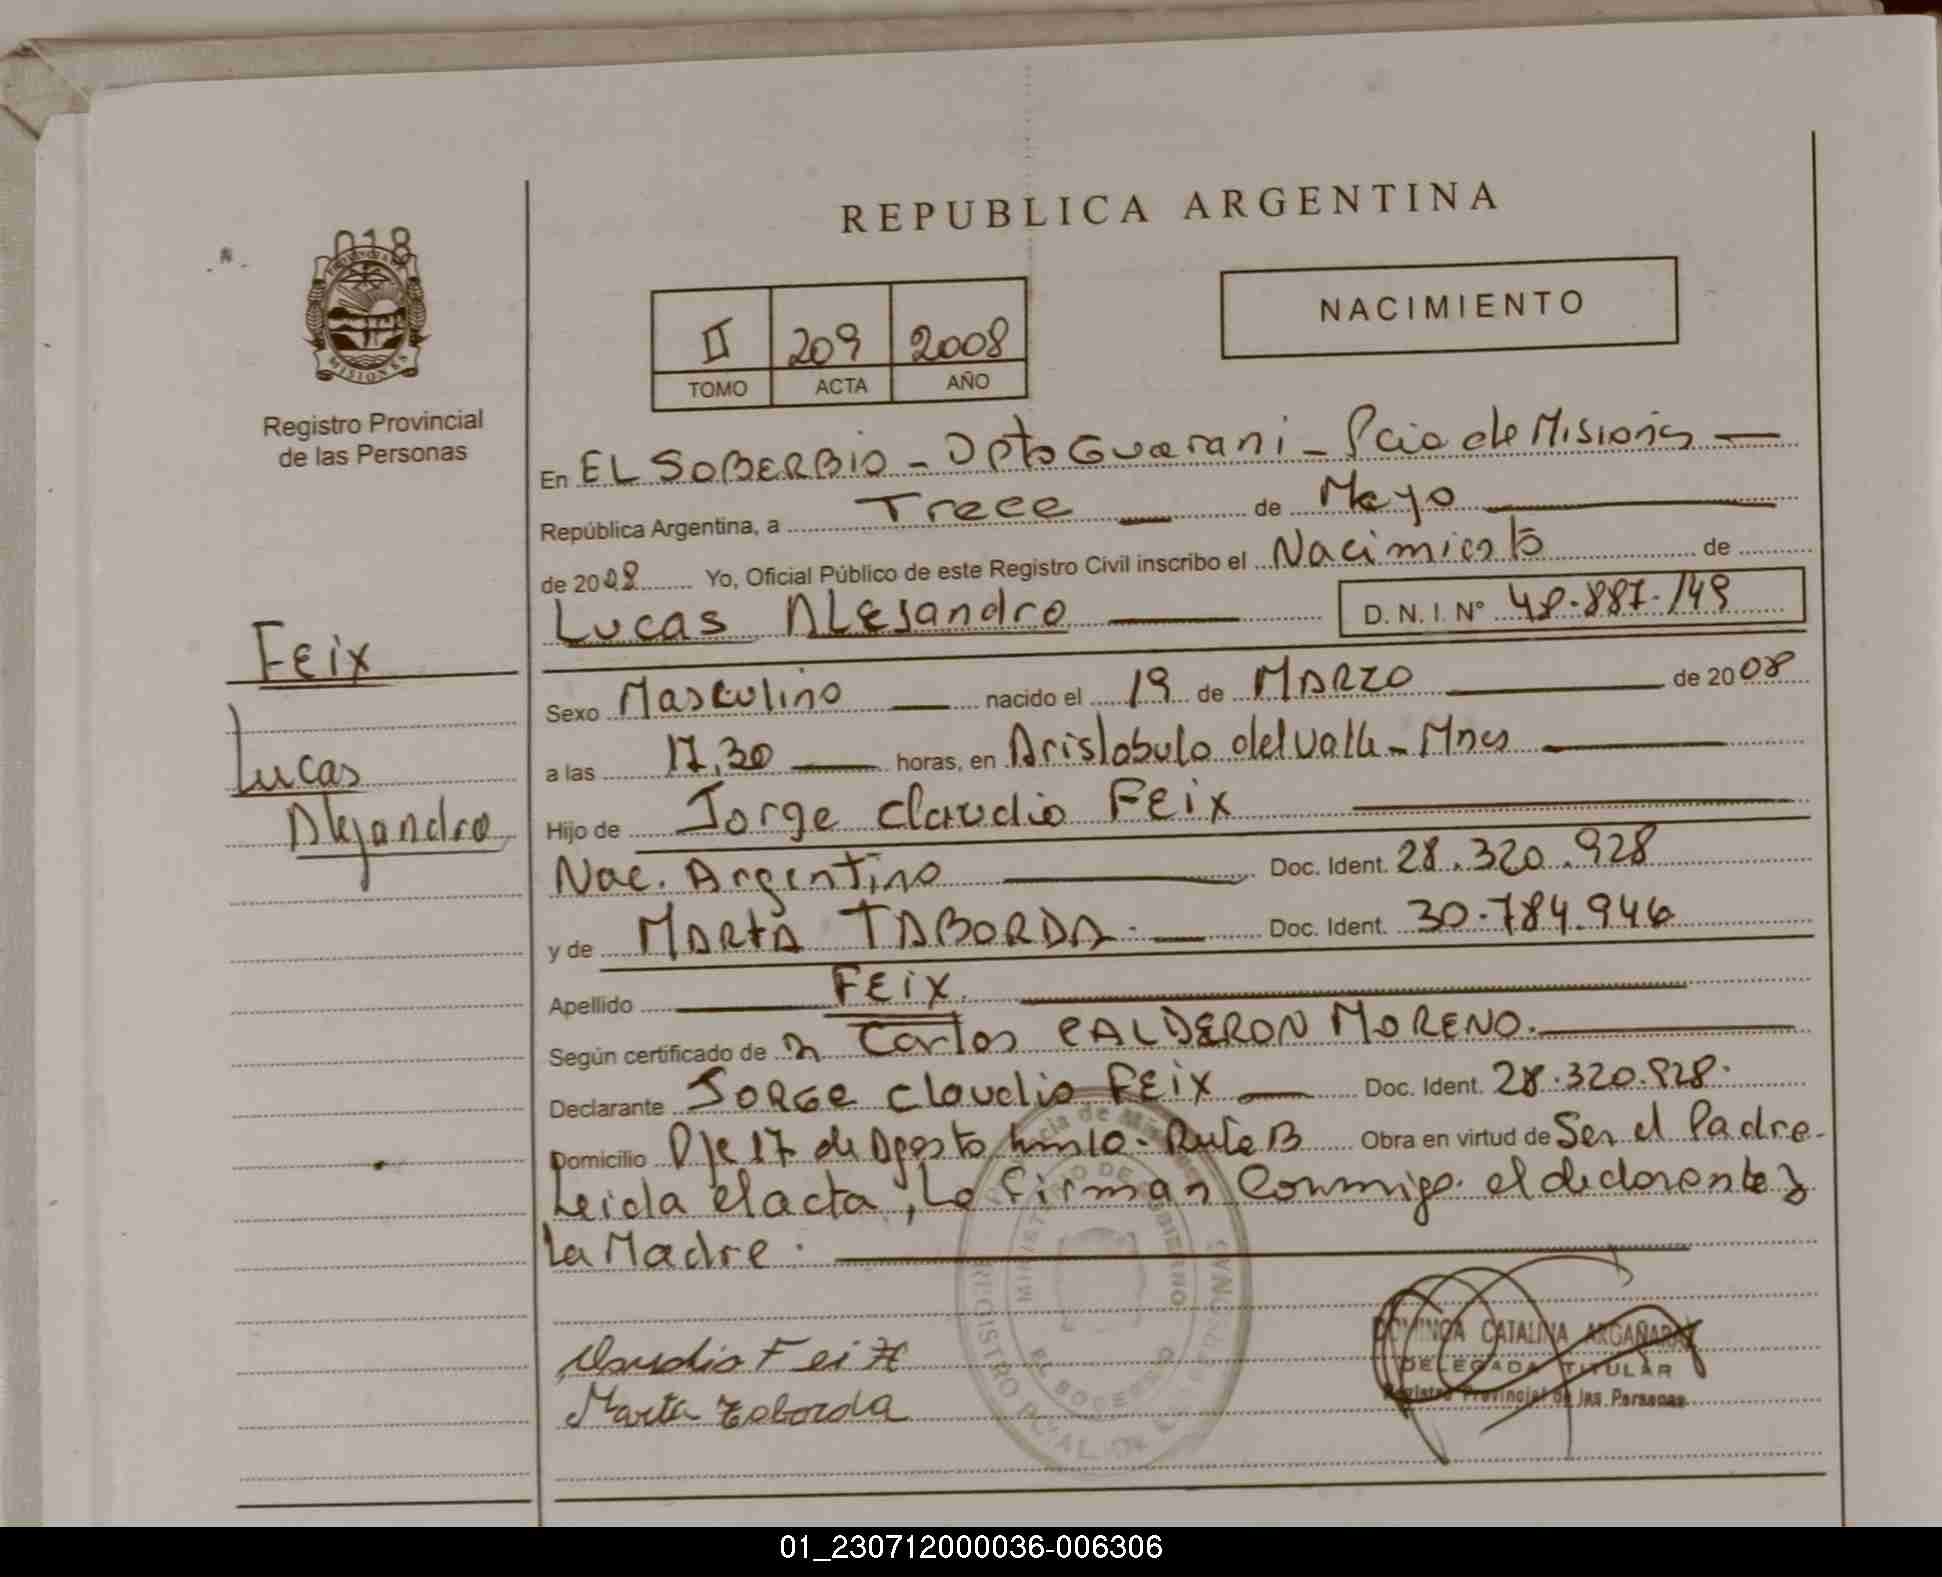 018
PROVINCIA DE
MISIONES
Registro Provincial
de las Personas
Feix
Lucas
Alejandro
REPUBLICA ARGENTINA
II 209 2008
TOMO ACTA AÑO
NACIMIENTO
En EL SOBERBIO - Dpto Guarani - Pcia de Misiones
República Argentina, a Trece de Mayo
de 2008 Yo, Oficial Público de este Registro Civil inscribo el Nacimiento de
Lucas ALEJandro D. N. I. Nº 48.887.149
Sexo Masculino nacido el 19 de MARZO de 2008
a las 17,30 horas, en Aristobulo del Valle - Mnes
Hijo de Jorge Claudio FEIX
Nac. Argentino Doc. Ident. 28.320.928
y de MARTA TABORDA. Doc. Ident. 30.784.946
Apellido FEIX.
Según certificado de Carlos CALDERON MORENO.
Declarante JORGE Claudio FEIX Doc. Ident. 28.320.928.
Domicilio Pje 17 de Agosto - Obra en virtud de Ser el Padre.
Leida el acta, La firman Conmigo el declarante y
La Madre.
Claudio Feix
Marta Taborda
Provincia de Misiones
MINISTERIO DE GOBIERNO
REGISTRO PCIAL. DE LAS PERSONAS
EL SOBERBIO
DOMINGA CATALINA ARGAÑARAZ
DELEGADA TITULAR
Registro Provincial de las Personas
01_230712000036-006306